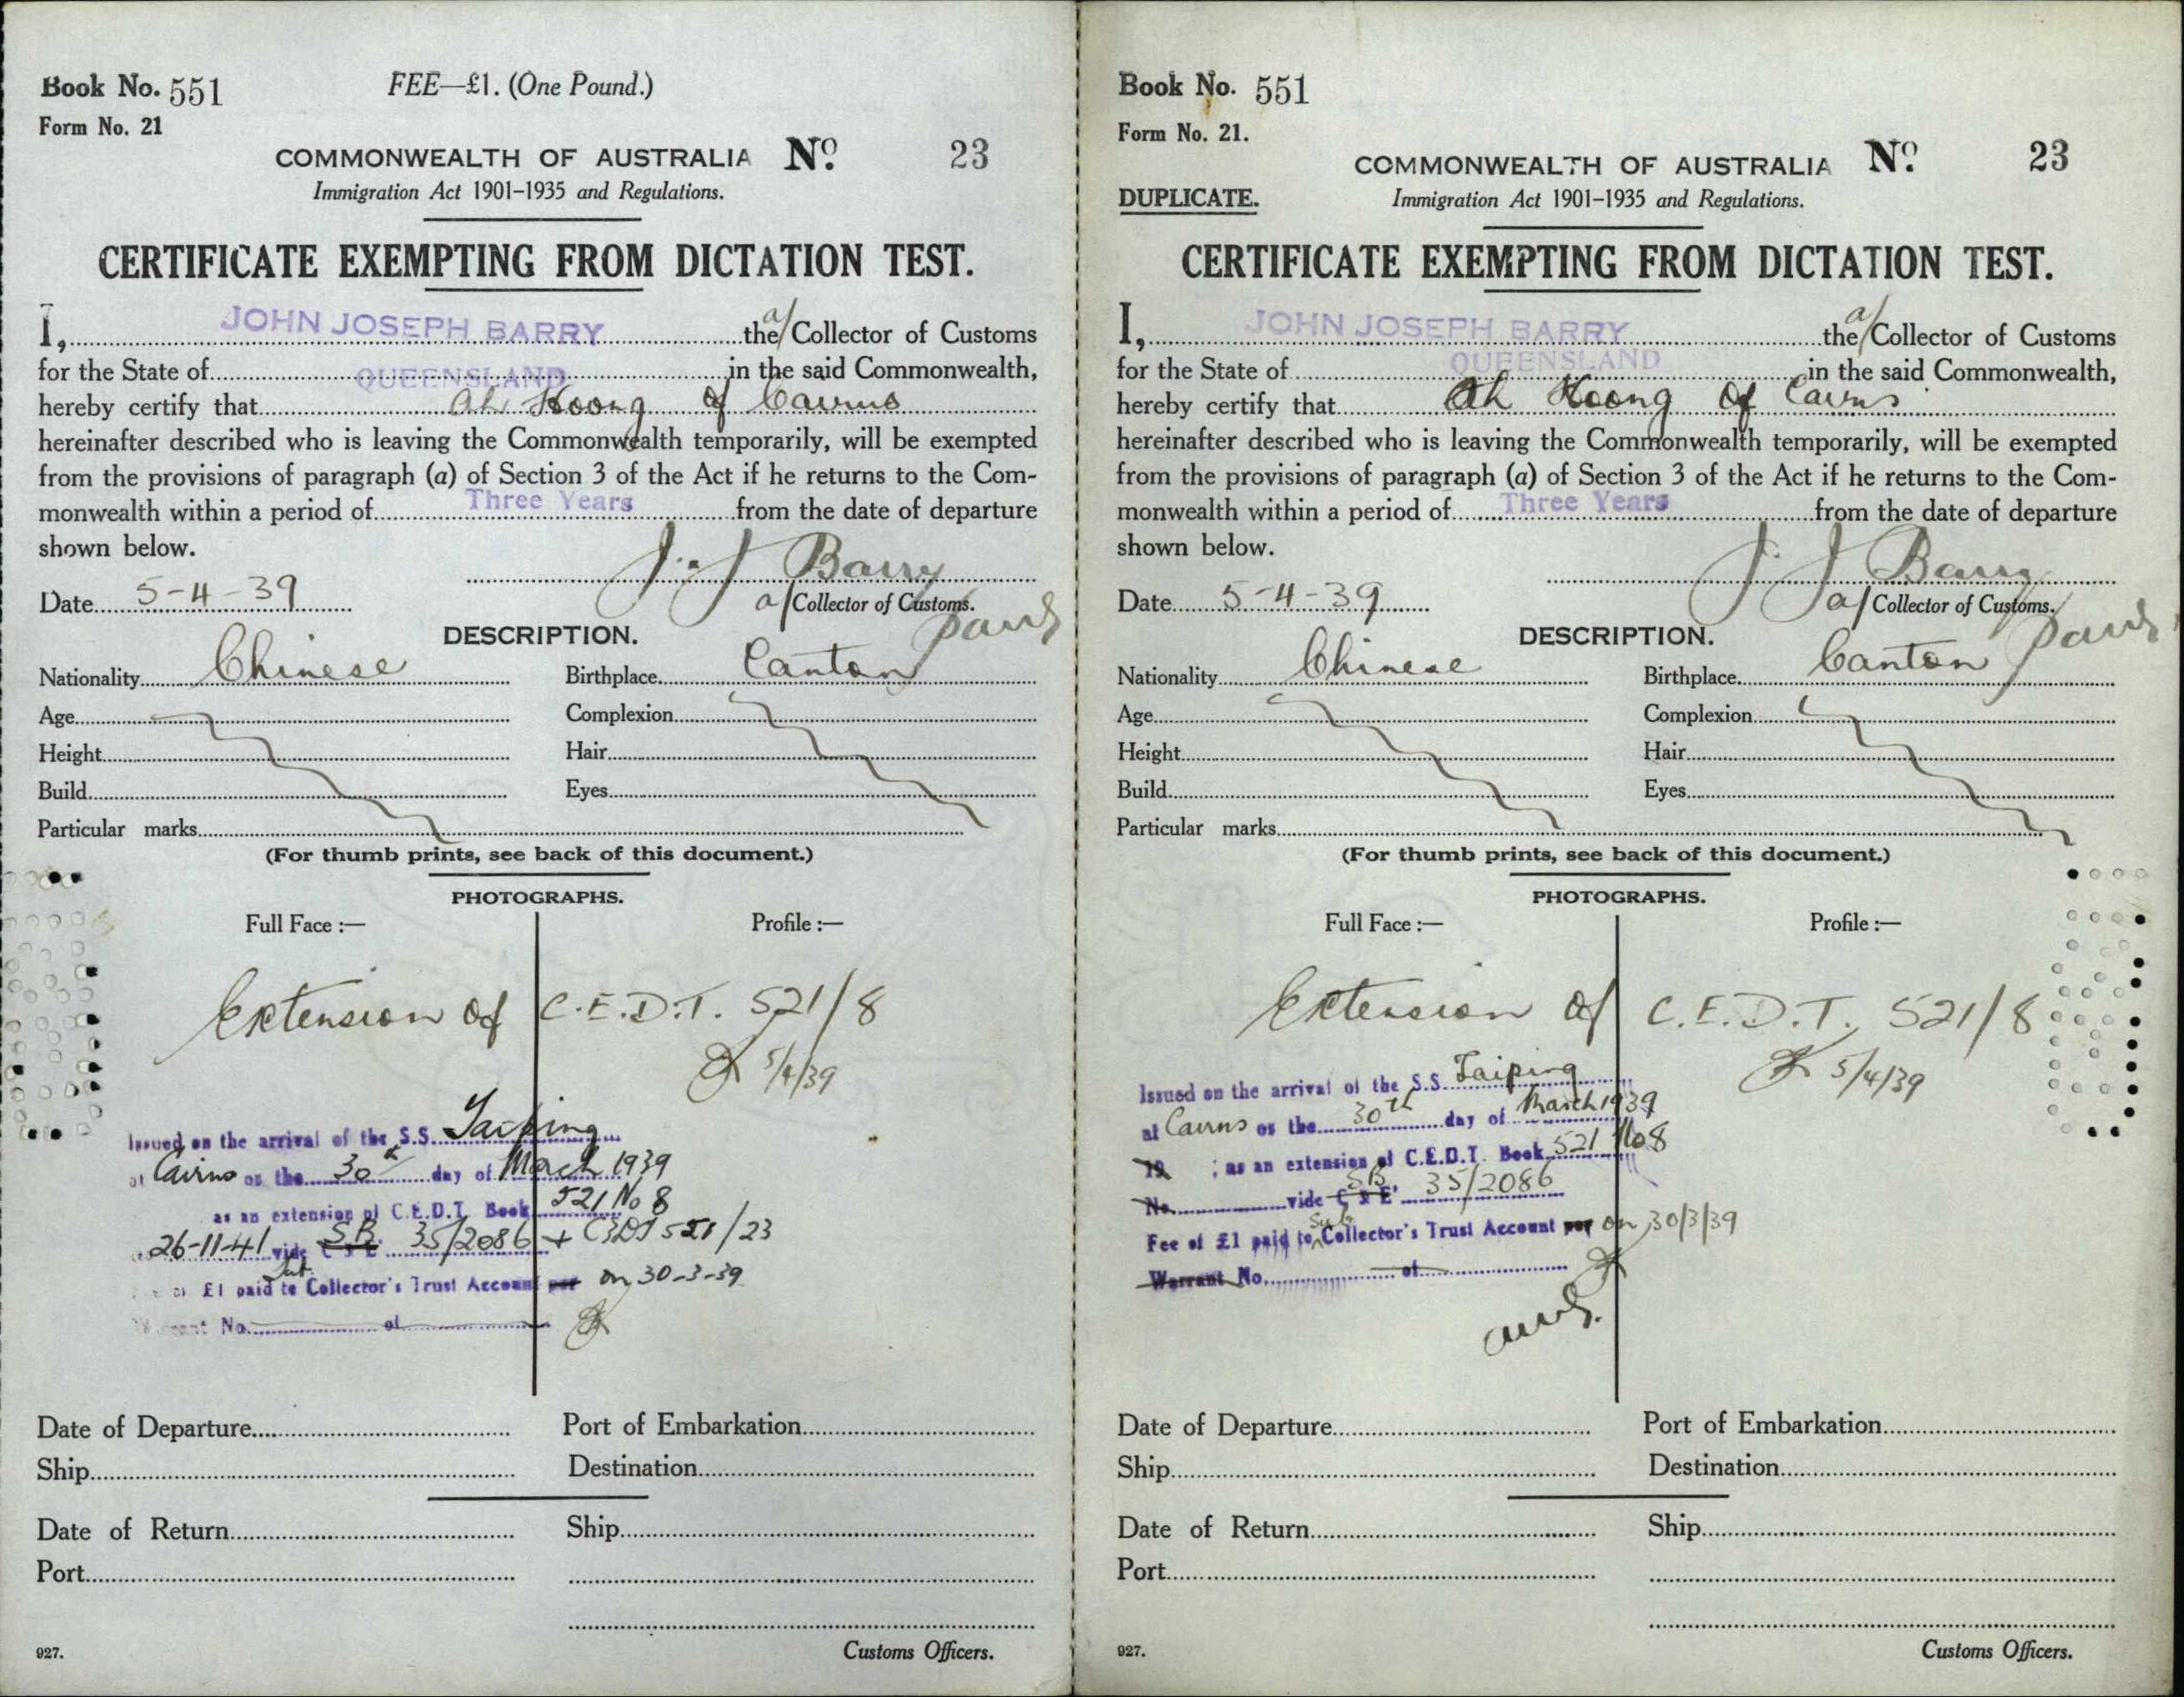 Book No. 551
FEE—£1. (One Pound.)
Form No. 21
COMMONWEALTH OF AUSTRALIA No. 23
Immigration Act 1901–1935 and Regulations.
CERTIFICATE EXEMPTING FROM DICTATION TEST.
I, JOHN JOSEPH BARRY the a/ Collector of Customs
for the State of QUEENSLAND in the said Commonwealth,
hereby certify that Ah Koong of Cairns
hereinafter described who is leaving the Commonwealth temporarily, will be exempted
from the provisions of paragraph (a) of Section 3 of the Act if he returns to the Com-
monwealth within a period of Three Years from the date of departure
shown below.
J. J Barry
Date 5-4-39 a/ Collector of Customs.
DESCRIPTION.
Nationality Chinese Birthplace Canton
Age Complexion
Height Hair
Build Eyes
Particular marks
(For thumb prints, see back of this document.)
PHOTOGRAPHS.
Full Face :— Profile :—
Extension of C.E.D.T. 521/8
5/4/39
Issued on the arrival of the S.S. Taiping
at Cairns on the 30th day of March 1939
as an extension of C.E.D.T. Book 521 No 8
26-11-41 vide C & E SB 35/2086 + CEDT 551/23
£1 paid to Sub Collector's Trust Account per on 30-3-39
Warrant No. of
Date of Departure Port of Embarkation
Ship Destination
Date of Return Ship
Port
927. Customs Officers.
Book No. 551
Form No. 21.
COMMONWEALTH OF AUSTRALIA No. 23
DUPLICATE. Immigration Act 1901–1935 and Regulations.
CERTIFICATE EXEMPTING FROM DICTATION TEST.
I, JOHN JOSEPH BARRY the a/ Collector of Customs
for the State of QUEENSLAND in the said Commonwealth,
hereby certify that Ah Koong of Cairns
hereinafter described who is leaving the Commonwealth temporarily, will be exempted
from the provisions of paragraph (a) of Section 3 of the Act if he returns to the Com-
monwealth within a period of Three Years from the date of departure
shown below.
J J Barry
Date 5-4-39 a/ Collector of Customs.
DESCRIPTION.
Nationality Chinese Birthplace Canton
Age Complexion
Height Hair
Build Eyes
Particular marks
(For thumb prints, see back of this document.)
PHOTOGRAPHS.
Full Face :— Profile :—
Extension of C.E.D.T. 521/8
5/4/39
Issued on the arrival of the S.S. Taiping
at Cairns on the 30th day of March 1939
19 ; as an extension of C.E.D.T. Book 521 No 8
No. vide C & E SB 35/2086
Fee of £1 paid to Sub Collector's Trust Account per on 30/3/39
Warrant No. of
Date of Departure Port of Embarkation
Ship Destination
Date of Return Ship
Port
927. Customs Officers.